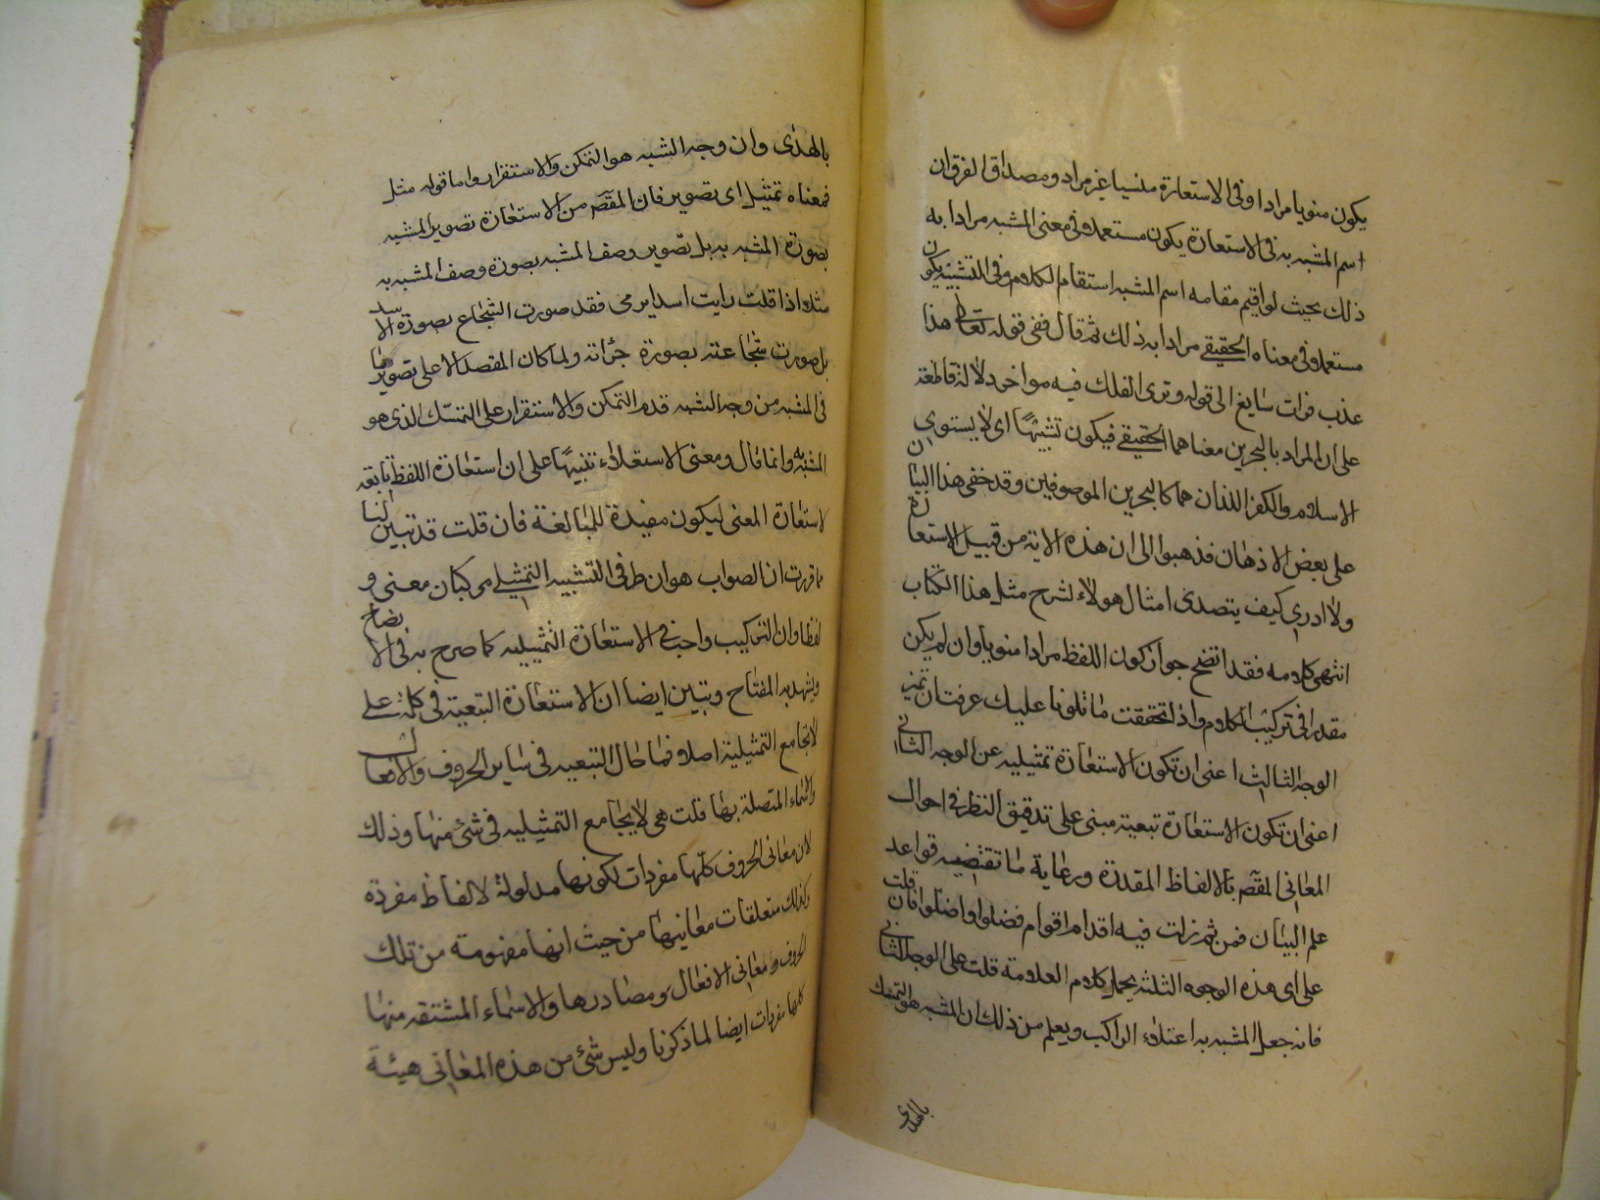 يكون منويا مرادا وفى الاستعارة منسيا غير مراد ومصداق الفرق ان
اسم المشبه به فى الاستعارة يكون مستعملا فى معنى المشبه مرادا به
ذلك بحيث لو اقيم مقامه اسم المشبه استقام الكلام وفى التشبيه يكون
مستعملا فى معناه الحقيقى مرادا به ذلك ثم قال ففى قوله تعالى هذا
عذب فرات سايغ الى قوله وترى الفلك فيه مواخر دلالة قاطعة
على ان المراد بالبحرين معناهما الحقيقى فيكون تشبيهًا اى لا يستوى
الاسلام والكفر اللذان هما كالبحرين الموصوفين وقد خفى هذا البيان
على بعض الاذهان فذهبوا الى ان هذه الاية من قبيل الاستعارة
ولا ادرى كيف يتصدى امثال هولاء لشرح مثل هذا الكتاب
انتهى كلامه فقد اتضح جواز كون اللفظ مرادا منويا وان لم يكن
مقدرا فى تركيب الكلام واذا تحققت ما تلونا عليك عرفت ان تميز
الوجه الثالث اعنى ان تكون الاستعارة تمثيليه عن الوجه الثانى
اعنى ان تكون الاستعارة تبعية مبنى على تدقيق النظر فى احوال
المعانى المقصَ بالالفاظ المقدرة ورعاية ما تقتضيه قواعد
علم البيان فمن ثم زلت فيه اقدام اقوام فضلوا واضلوا فان قلت
على اى هذه الوجوه الثلثة يحمل كلام العلامة قلت على الوجه الثانى
فانه جعل المشبه به اعتلاء الراكب ويعلم من ذلك ان المشبه هو التمسك
بالهدى
بالهدى وان وجه الشبه هو التمكن والاستقرار واما قوله مثل
فمعناه تمثيل اى تصوير فان المقصَ من الاستعارة تصوير المشبه
بصورة المشبه به بل تصوير وصف المشبه بصورة وصف المشبه به
مثلا اذا قلت رايت اسدا يرمى فقد صورت الشجاع بصورة الاسد
بل صورت شجاعته بصورة جرأته ولما كان المقصد الاعلى تصوير ما
فى المشبه من وجه الشبه قدم التمكن والاستقرار على التمسّك الذى هو
المشبه وانما قال ومعنى الاستعلاء تنبيهًا على ان استعارة اللفظ تابعة
لاستعارة المعنى ليكون مفيدة للمبالغة فان قلت قد تبين لنا
مما قررت ان الصواب هو ان طرفى التشبيه التمثيلى مركبان معنى و
لفظا وان التركيب واجب فى الاستعارة التمثيليه كما صرح به فى الايضاح
ويشهد به المفتاح وتبين ايضا ان الاستعارة التبعية فى كلمة على
لا تجامع التمثيلية اصلا فما حال التبعيه فى ساير الحروف والافعال
والاسماء المتصلة بها قلت هى لا يجامع التمثيليه فى شئ منها وذلك
لان معانى الحروف كلّها مفردات لكونها مدلولة لالفاظ مفردة
وكذلك متعلقات معانيها من حيث انها مفهومة من تلك
الحروف ومعانى الافعال ومصادرها والاسماء المشتقه منها
كلها مفردات ايضا لما ذكرنا وليس شئ من هذه المعانى هيئة